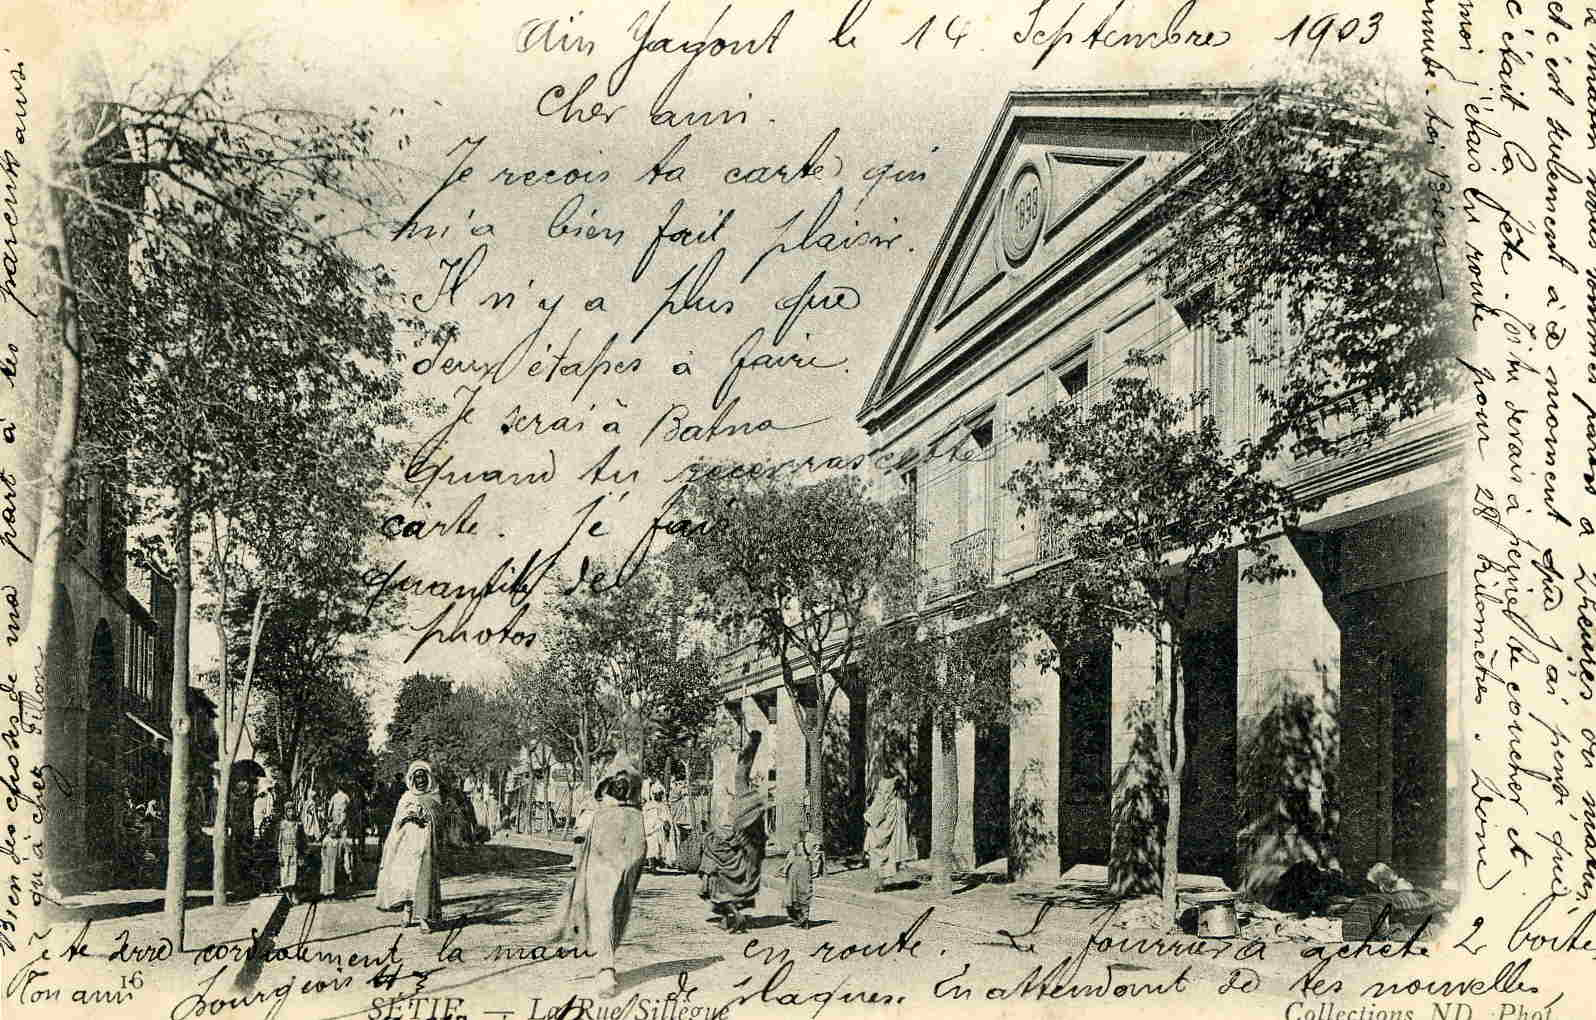 Ain Yagout le 14 Septembre 1903
Cher ami.
Je recois ta carte qui
m'a bien fait plaisir.
Il n'y a plus que
deux étapes à faire.
Je serai à Batna
quand tu recevras cette
carte. Je fais
quantité de
photos
en route. Le fourrier à acheté 2 boîte
de plaques. En attendant de tes nouvelles,
je te serre cordialement la main
Ton ami
Bourgeois
Bien des choses de ma part à tes parents aussi
qu'à chez
ce matin nous sommes partis à 2 heures du
et c'est seulement à ce moment que j'ai pensé que
c'était la fête. Toi tu devais à peine te coucher et
moi j'étais en route pour 28 kilomètres. Bonne
année. toi Bien
1898
16
SÉTIF — La Rue Sillègue
Collections ND. Phot.